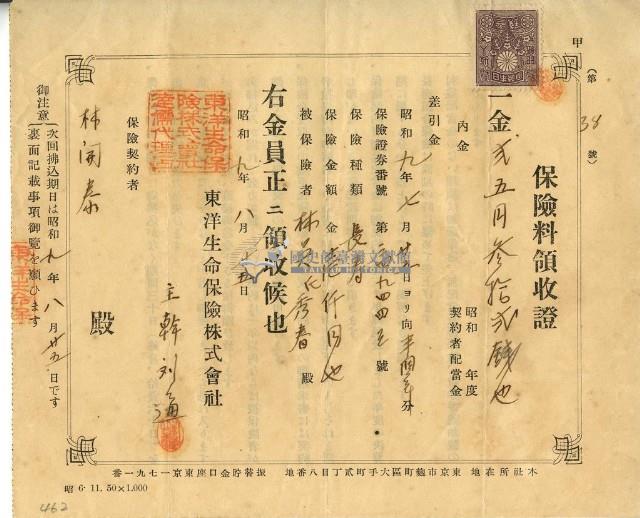 甲
(第 38 號)
保險料領收證
一金貳五円參拾貳錢也
昭和 年度
契約者配當金
內金
差引金
昭和九年七月廿 日ヨリ向半個年分
保險證券番號 第 號
保險種類 長壽
保險金額 金 仟円也
被保險者 林 氏秀春 殿
右金員正ニ領收候也
昭和九年八月 五日
東洋生命保險株式會社
東洋生命保險株式會社
主幹 劉通
保險契約者
林開泰 殿
御注意
次回拂込期日は昭和九年八月廿五日です
裏面記載事項御覽を願ひます
國史館臺灣文獻館
TAIWAN HISTORICA
本社所在地 東京市麴町區大手町貳丁目八番地 振替貯金口座東京一七九一番
昭 6.11.50×1.000
462